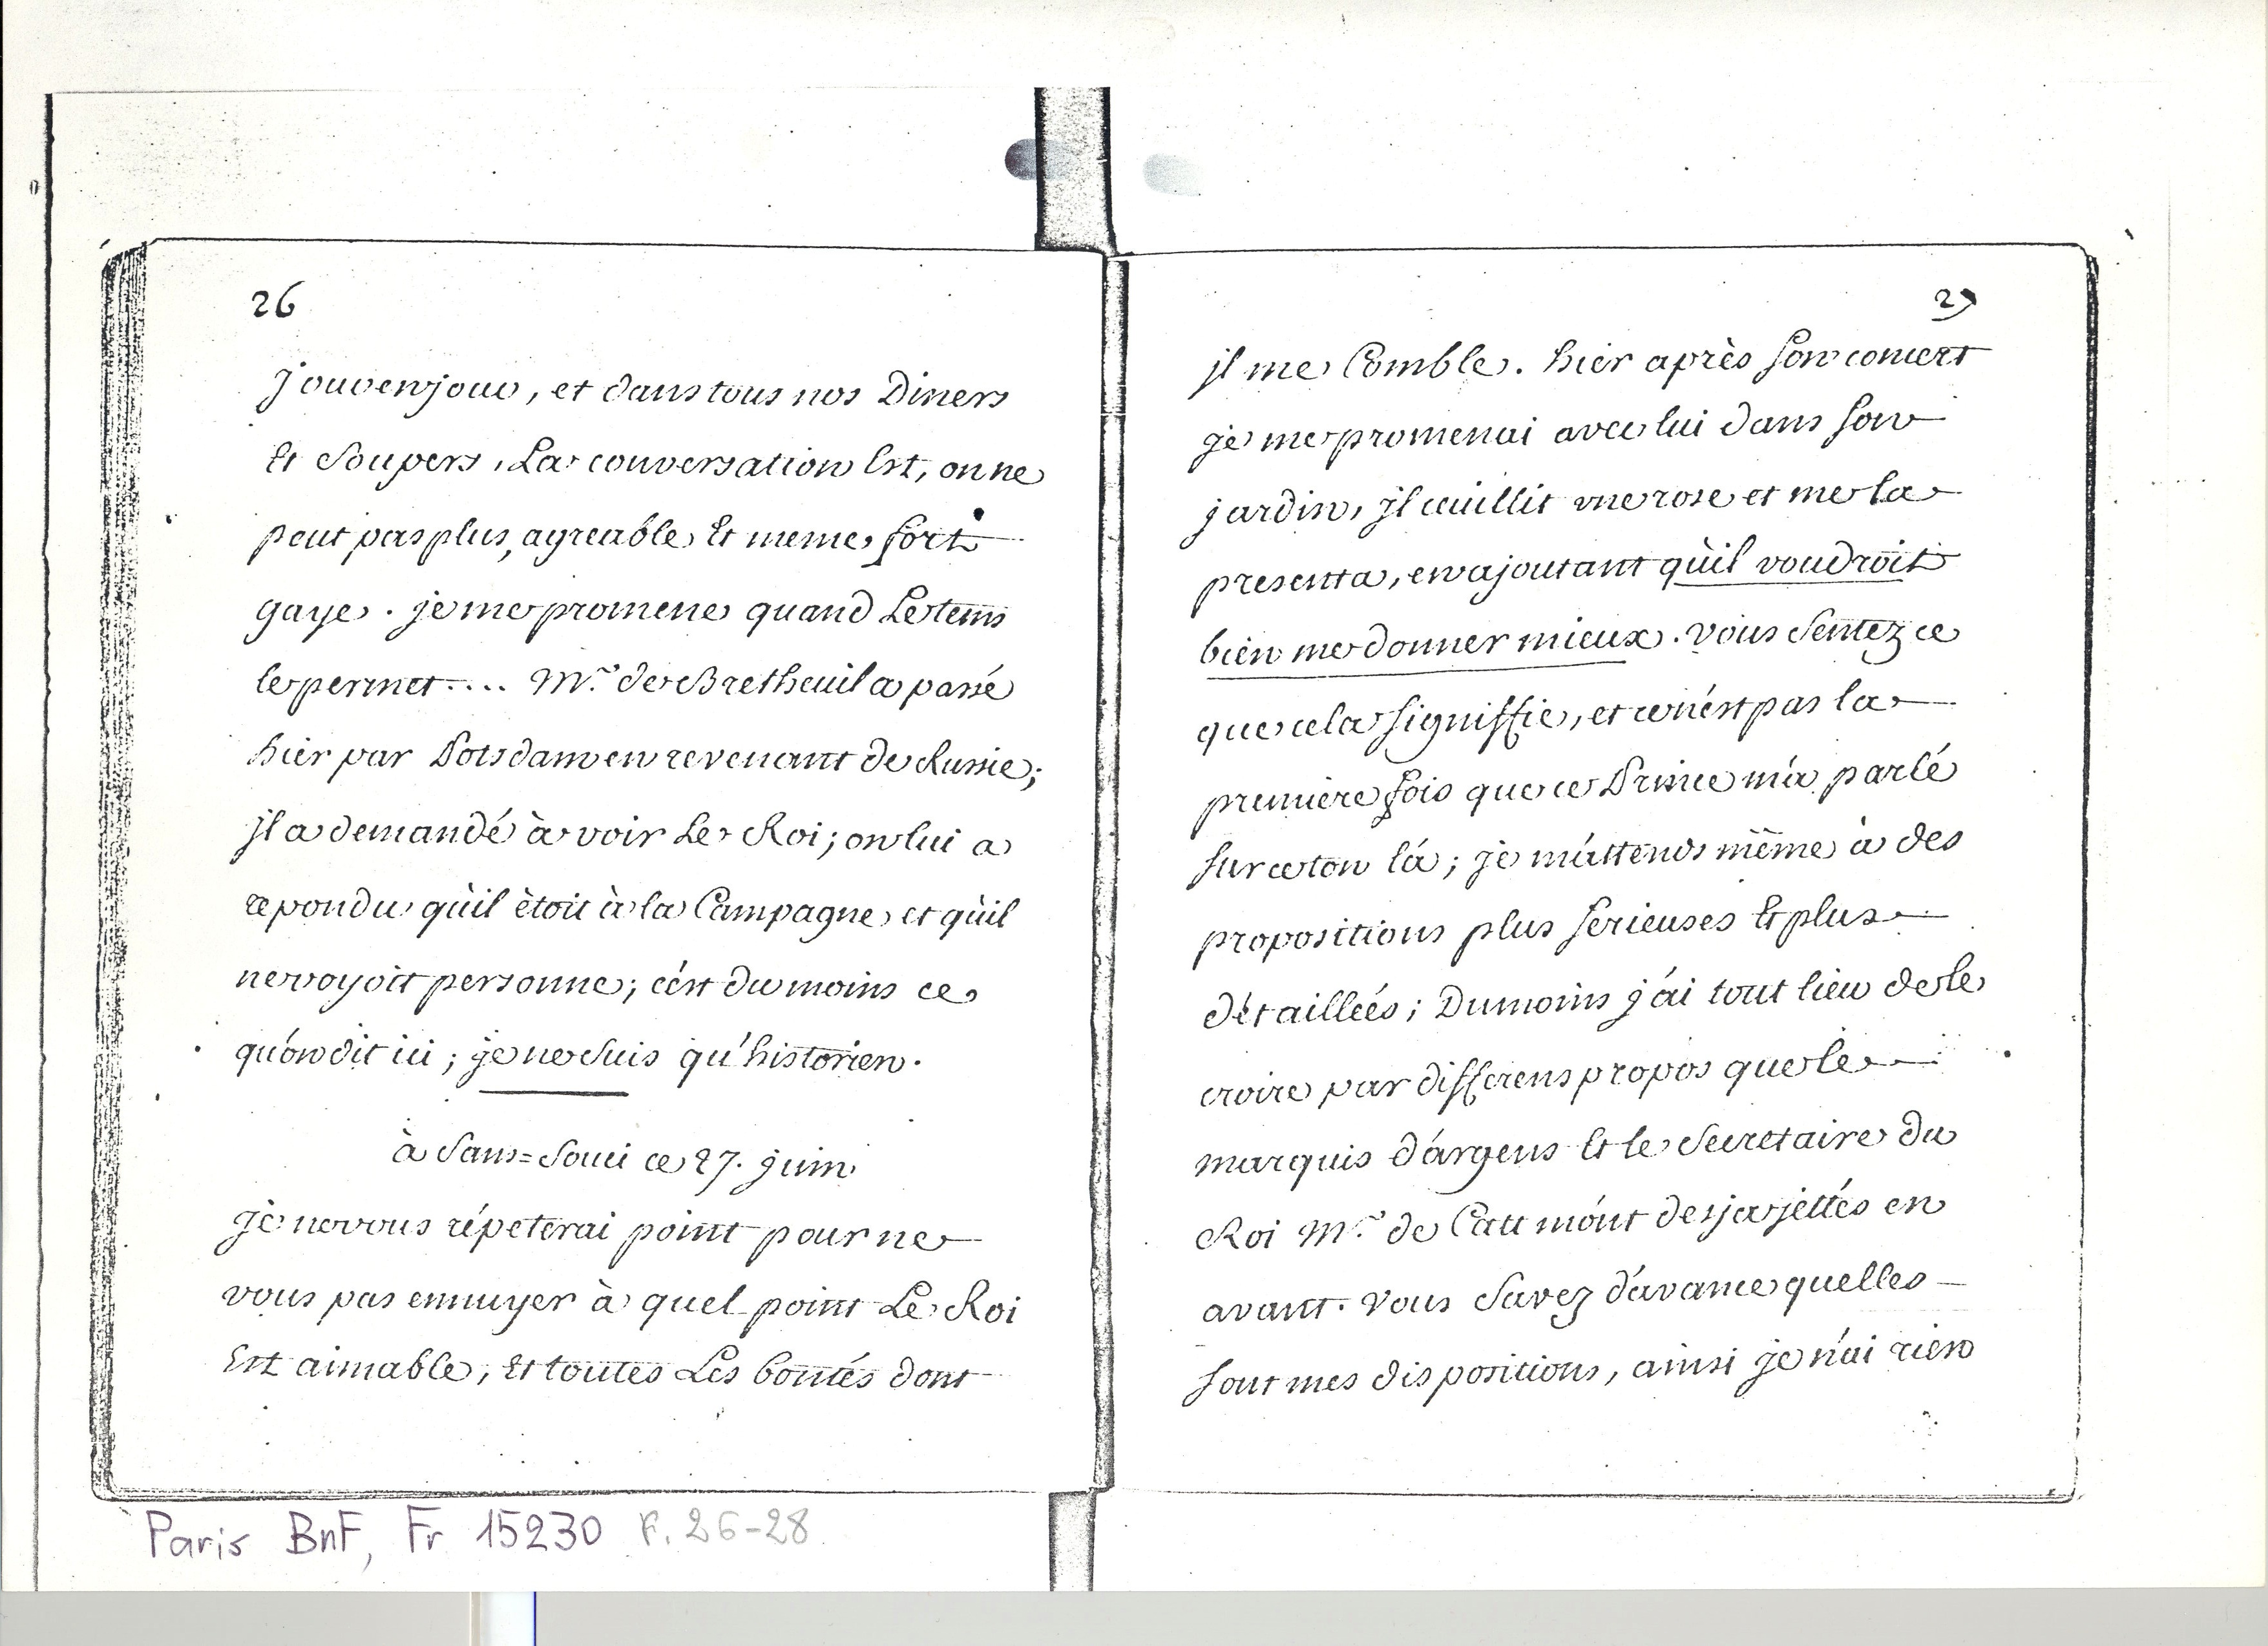 26
jour en jour, et dans tous nos Diners
Et Soupers, La conversation Est, on ne
peut pas plus, agreable Et meme fort
gaye. je me promene quand Le tems
le permet.... Mr. de Bretheuil a passé
hier par Potsdam en revenant de Russie;
jl a demandé à voir Le Roi; on lui a
repondu qu'il ètoit à la Campagne et qu'il
ne voyoit personne; c'est du moins ce
qu'on dit ici; je ne suis qu'historien.
à Sans=Souci ce 27. juin
je ne vous répeterai point pour ne
vous pas ennuyer à quel point Le Roi
Est aimable, Et toutes Les bontés dont
27
jl me Comble. hier après son concert
je me promenai avec lui dans son
jardin, jl cuillit une rose et me la
presenta, en ajoutant qu'il voudroit
bien me donner mieux. vous Sentez ce
que cela signiffie, et ce n'est pas la
premiere fois que ce Prince m'a parlé
sur ce ton là; je m'attends même à des
propositions plus serieuses Et plus
dètaillées; Du moins j'ai tout lieu de le
croire par differens propos que le
marquis d'argens Et le Secretaire du
Roi Mr. de Catt m'ont desja jettés en
avant. vous Savez d'avance quelles
sont mes dispositions, ainsi je n'ai rien
Paris BnF, Fr 15230 F. 26-28